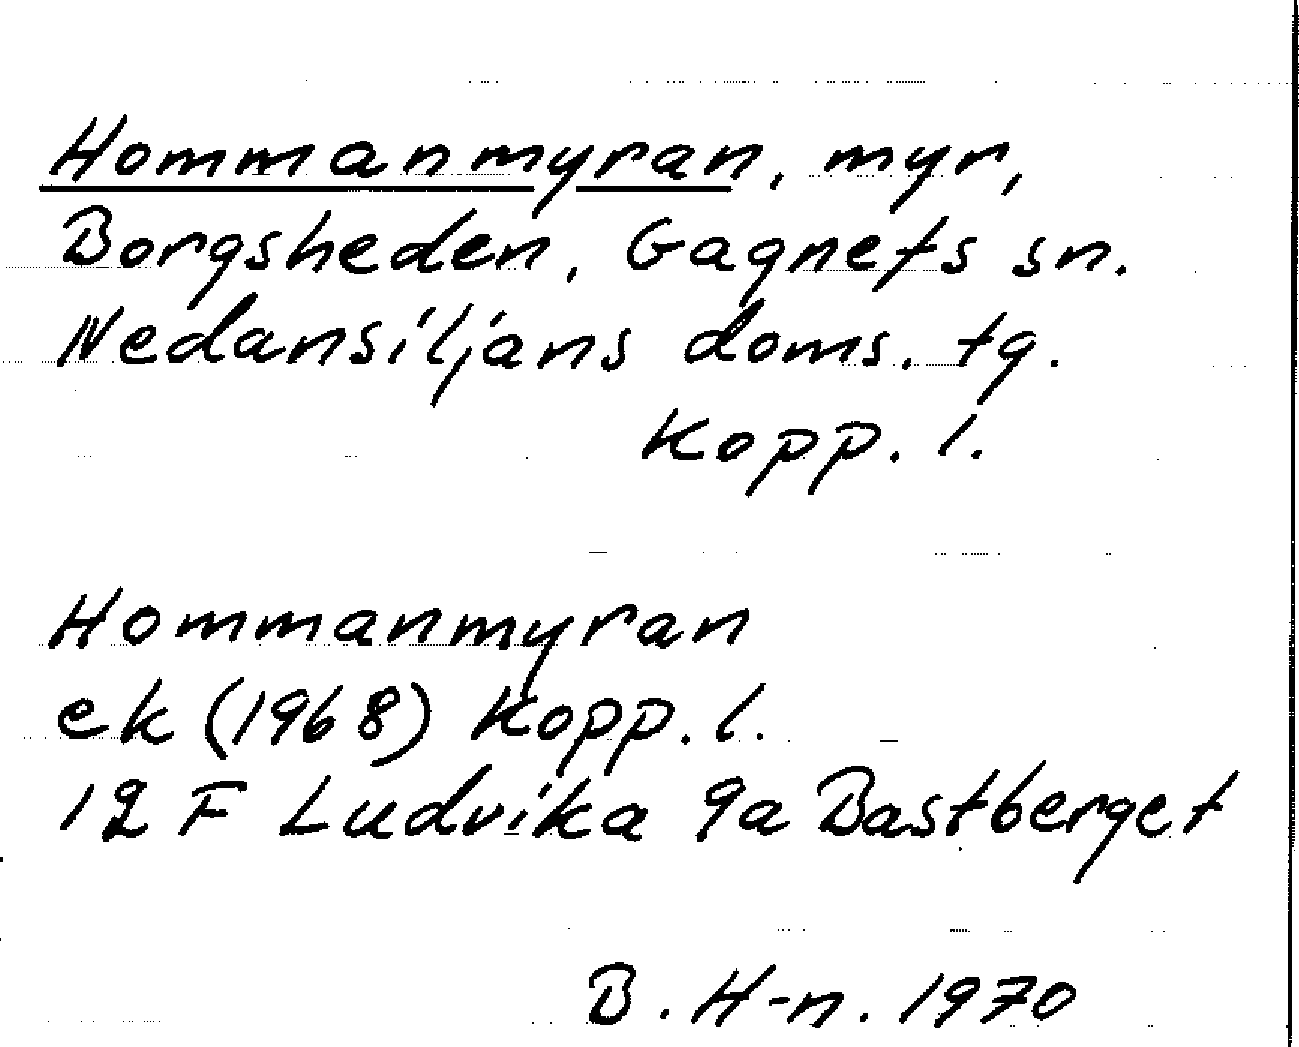 Hommanmyran, myr,
Borgsheden, Gagnefs sn.
Nedansiljans doms. tg.
Kopp. l.
Hommanmyran
ek (1968) Kopp. l.
12 F Ludvika 9a Bastberget
B. H-n. 1970